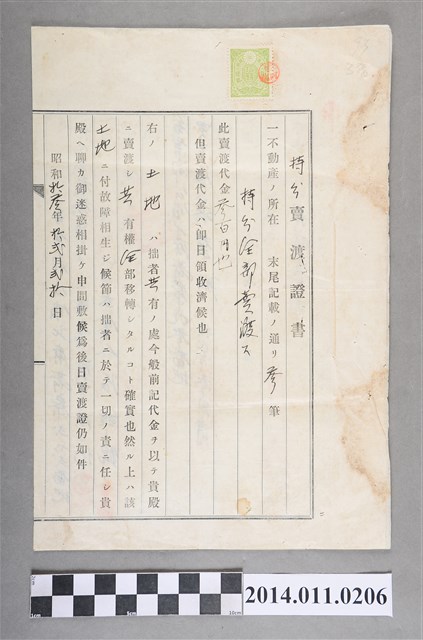 持分賣渡證書
一不動產ノ所在 末尾記載ノ通リ參筆
持分全部賣渡ス
此賣渡代金參百円也
但賣渡代金ハ即日領收濟候也
右ノ土地ハ拙者共有ノ處今般前記代金ヲ以テ貴殿
ニ賣渡し共有權全部移轉シタルコト確實也然ル上ハ該
土地ニ付故障相生ジ候節ハ拙者ニ於テ一切ノ責ニ任し貴
殿ヘ聊カ御迷惑相掛ケ申間敷候爲後日賣渡證仍如件
昭和拾參年拾貳月貳拾日
2014.011.0206
1cm 5cm 10cm